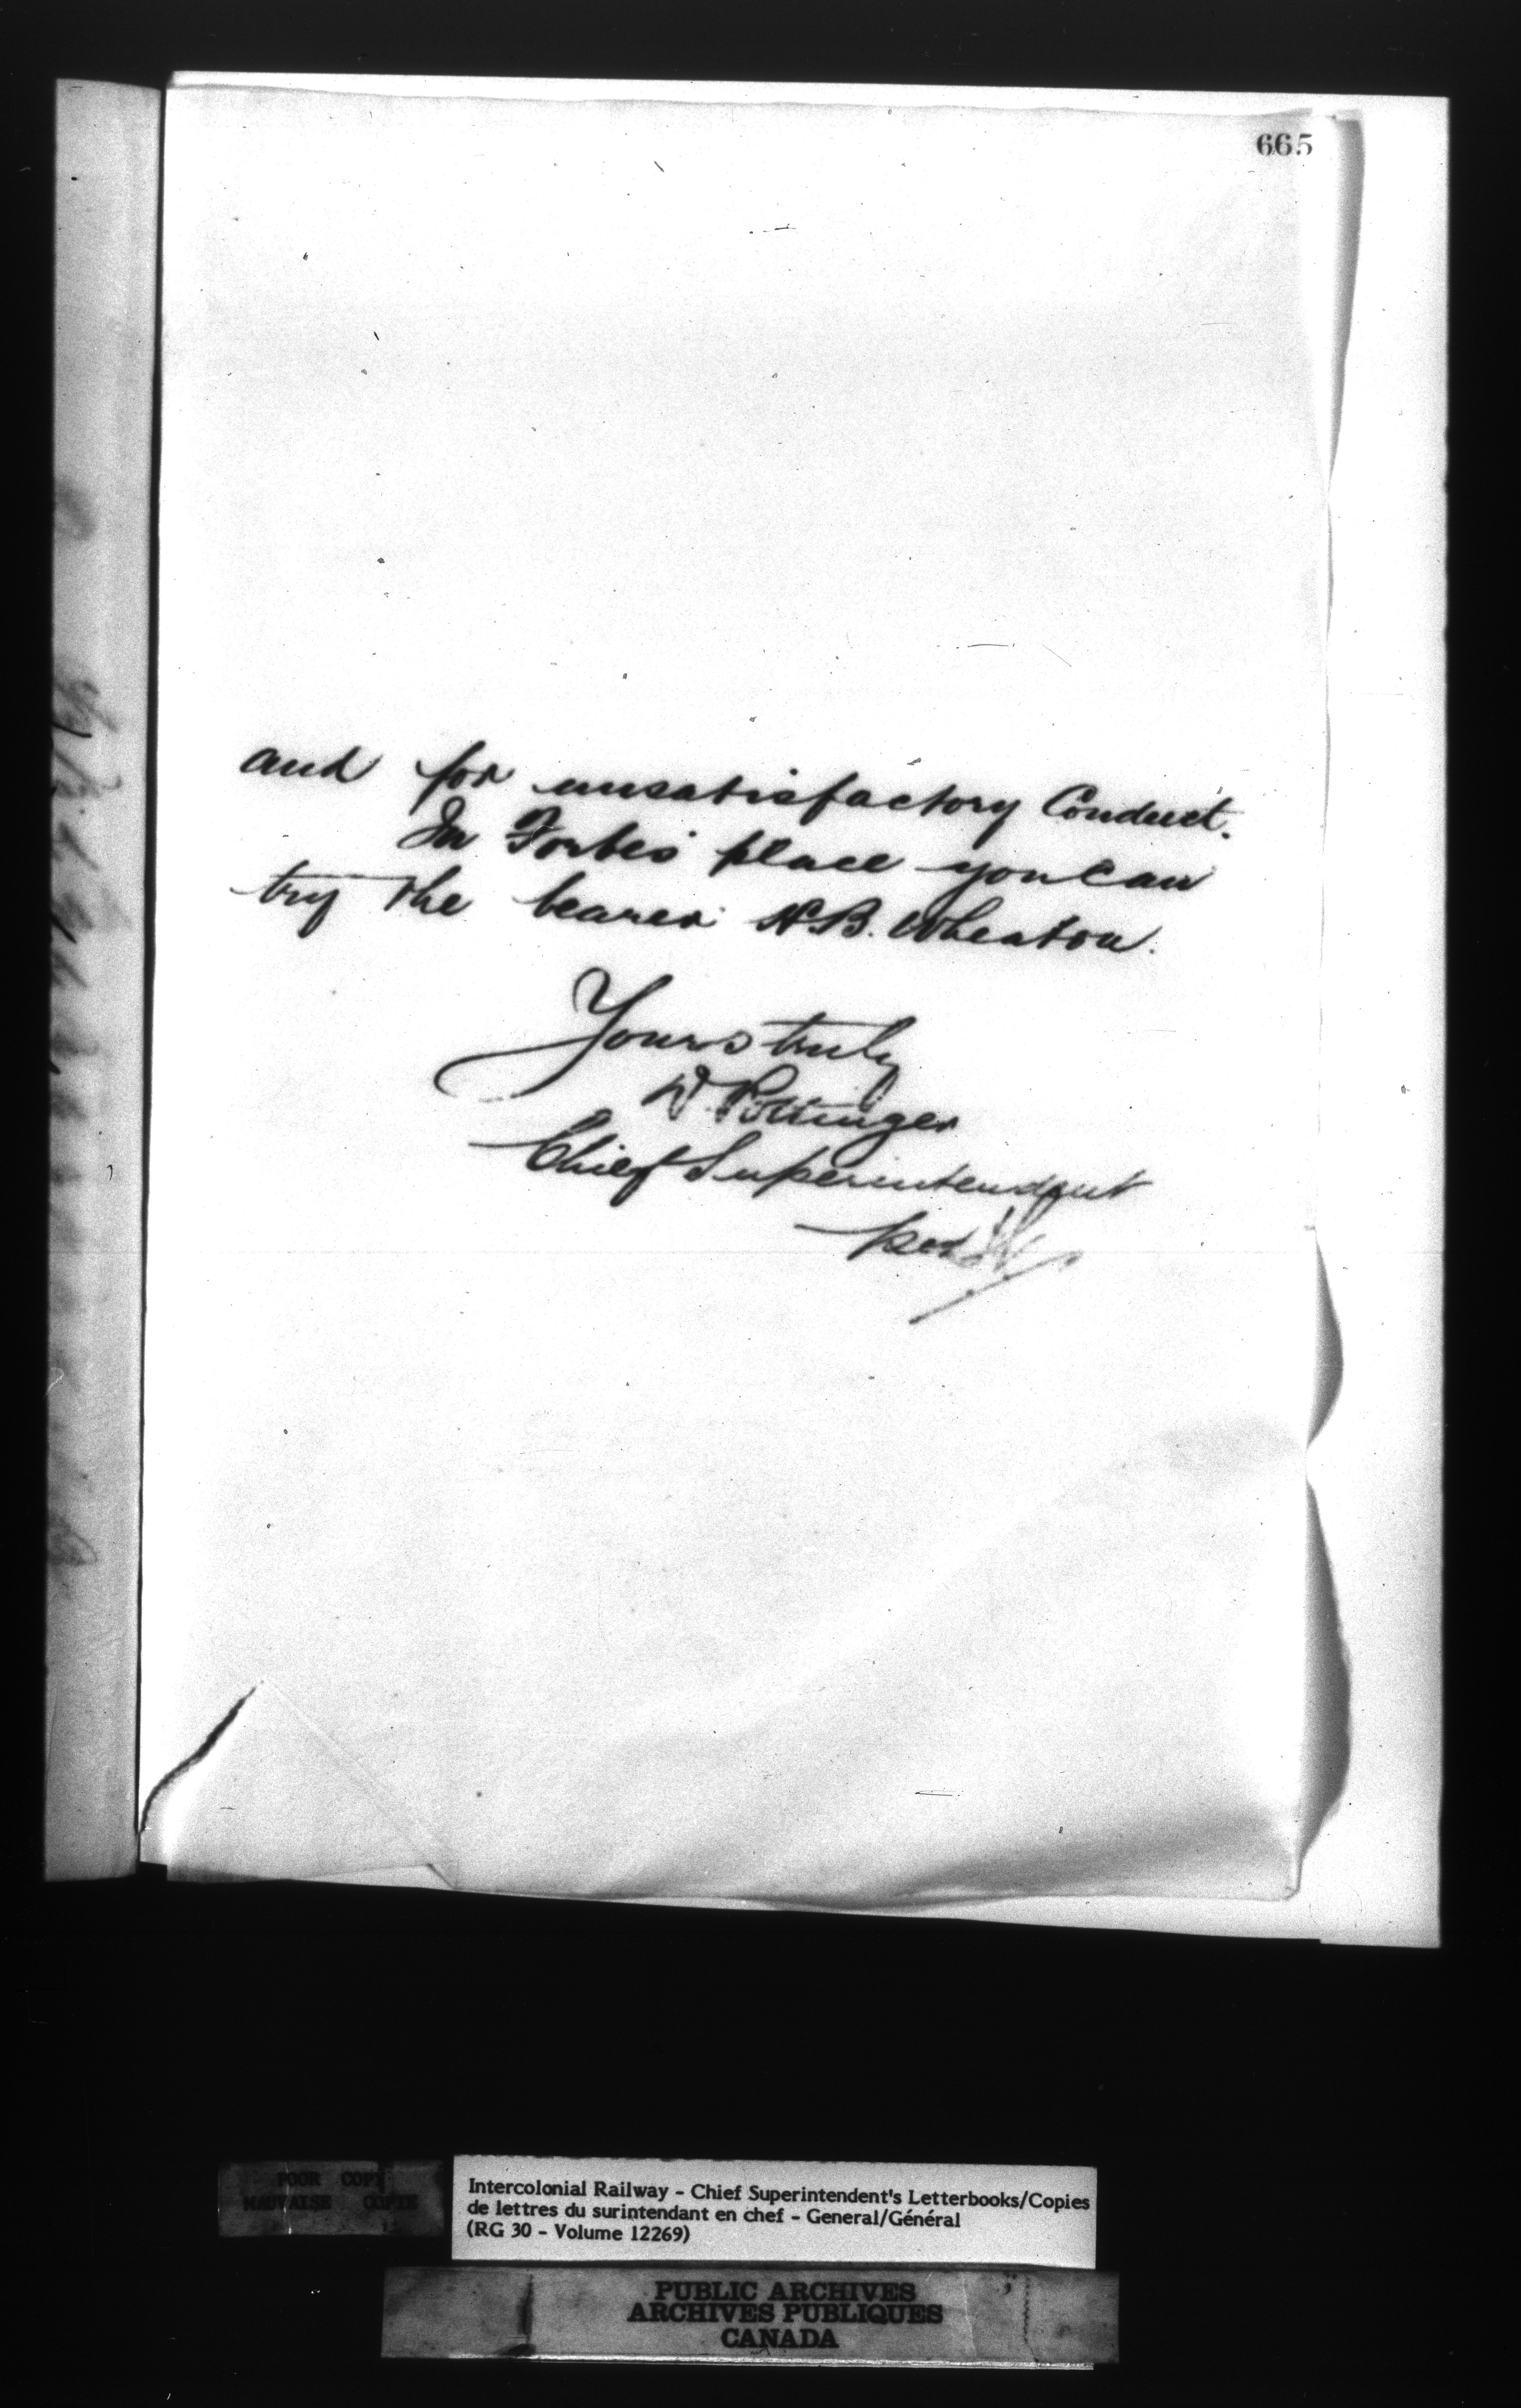 665
and for unsatisfactory Conduct.
In Forbes' place you can
try the bearer H.B. Wheaton.
Yours truly
D. Pottinger
Chief Superintendent
per
POOR COPY
MAUVAISE COPIE
Intercolonial Railway - Chief Superintendent's Letterbooks/Copies
de lettres du surintendant en chef - General/Général
(RG 30 - Volume 12269)
PUBLIC ARCHIVES
ARCHIVES PUBLIQUES
CANADA